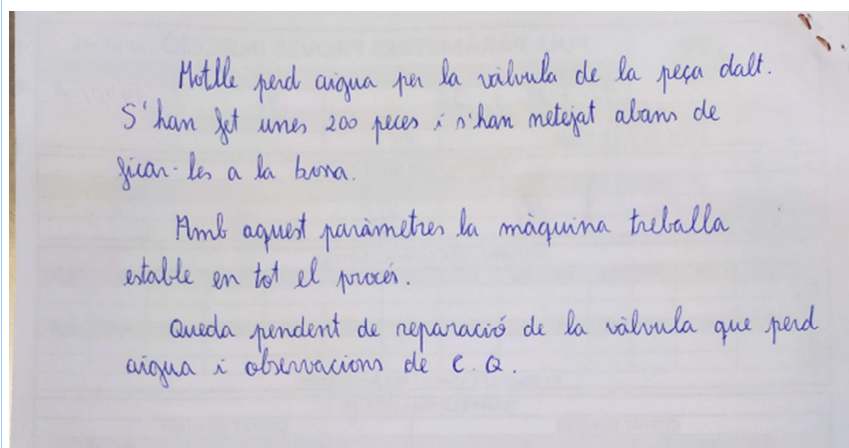 Motlle perd aigua per la vàlvula de la peça dalt.
S'han fet unes 200 peces i s'han netejat abans de
ficar-les a la bossa.
Amb aquest paràmetres la màquina treballa
estable en tot el procés.
Queda pendent de reparació de la vàlvula que perd
aigua i observacions de C.Q.